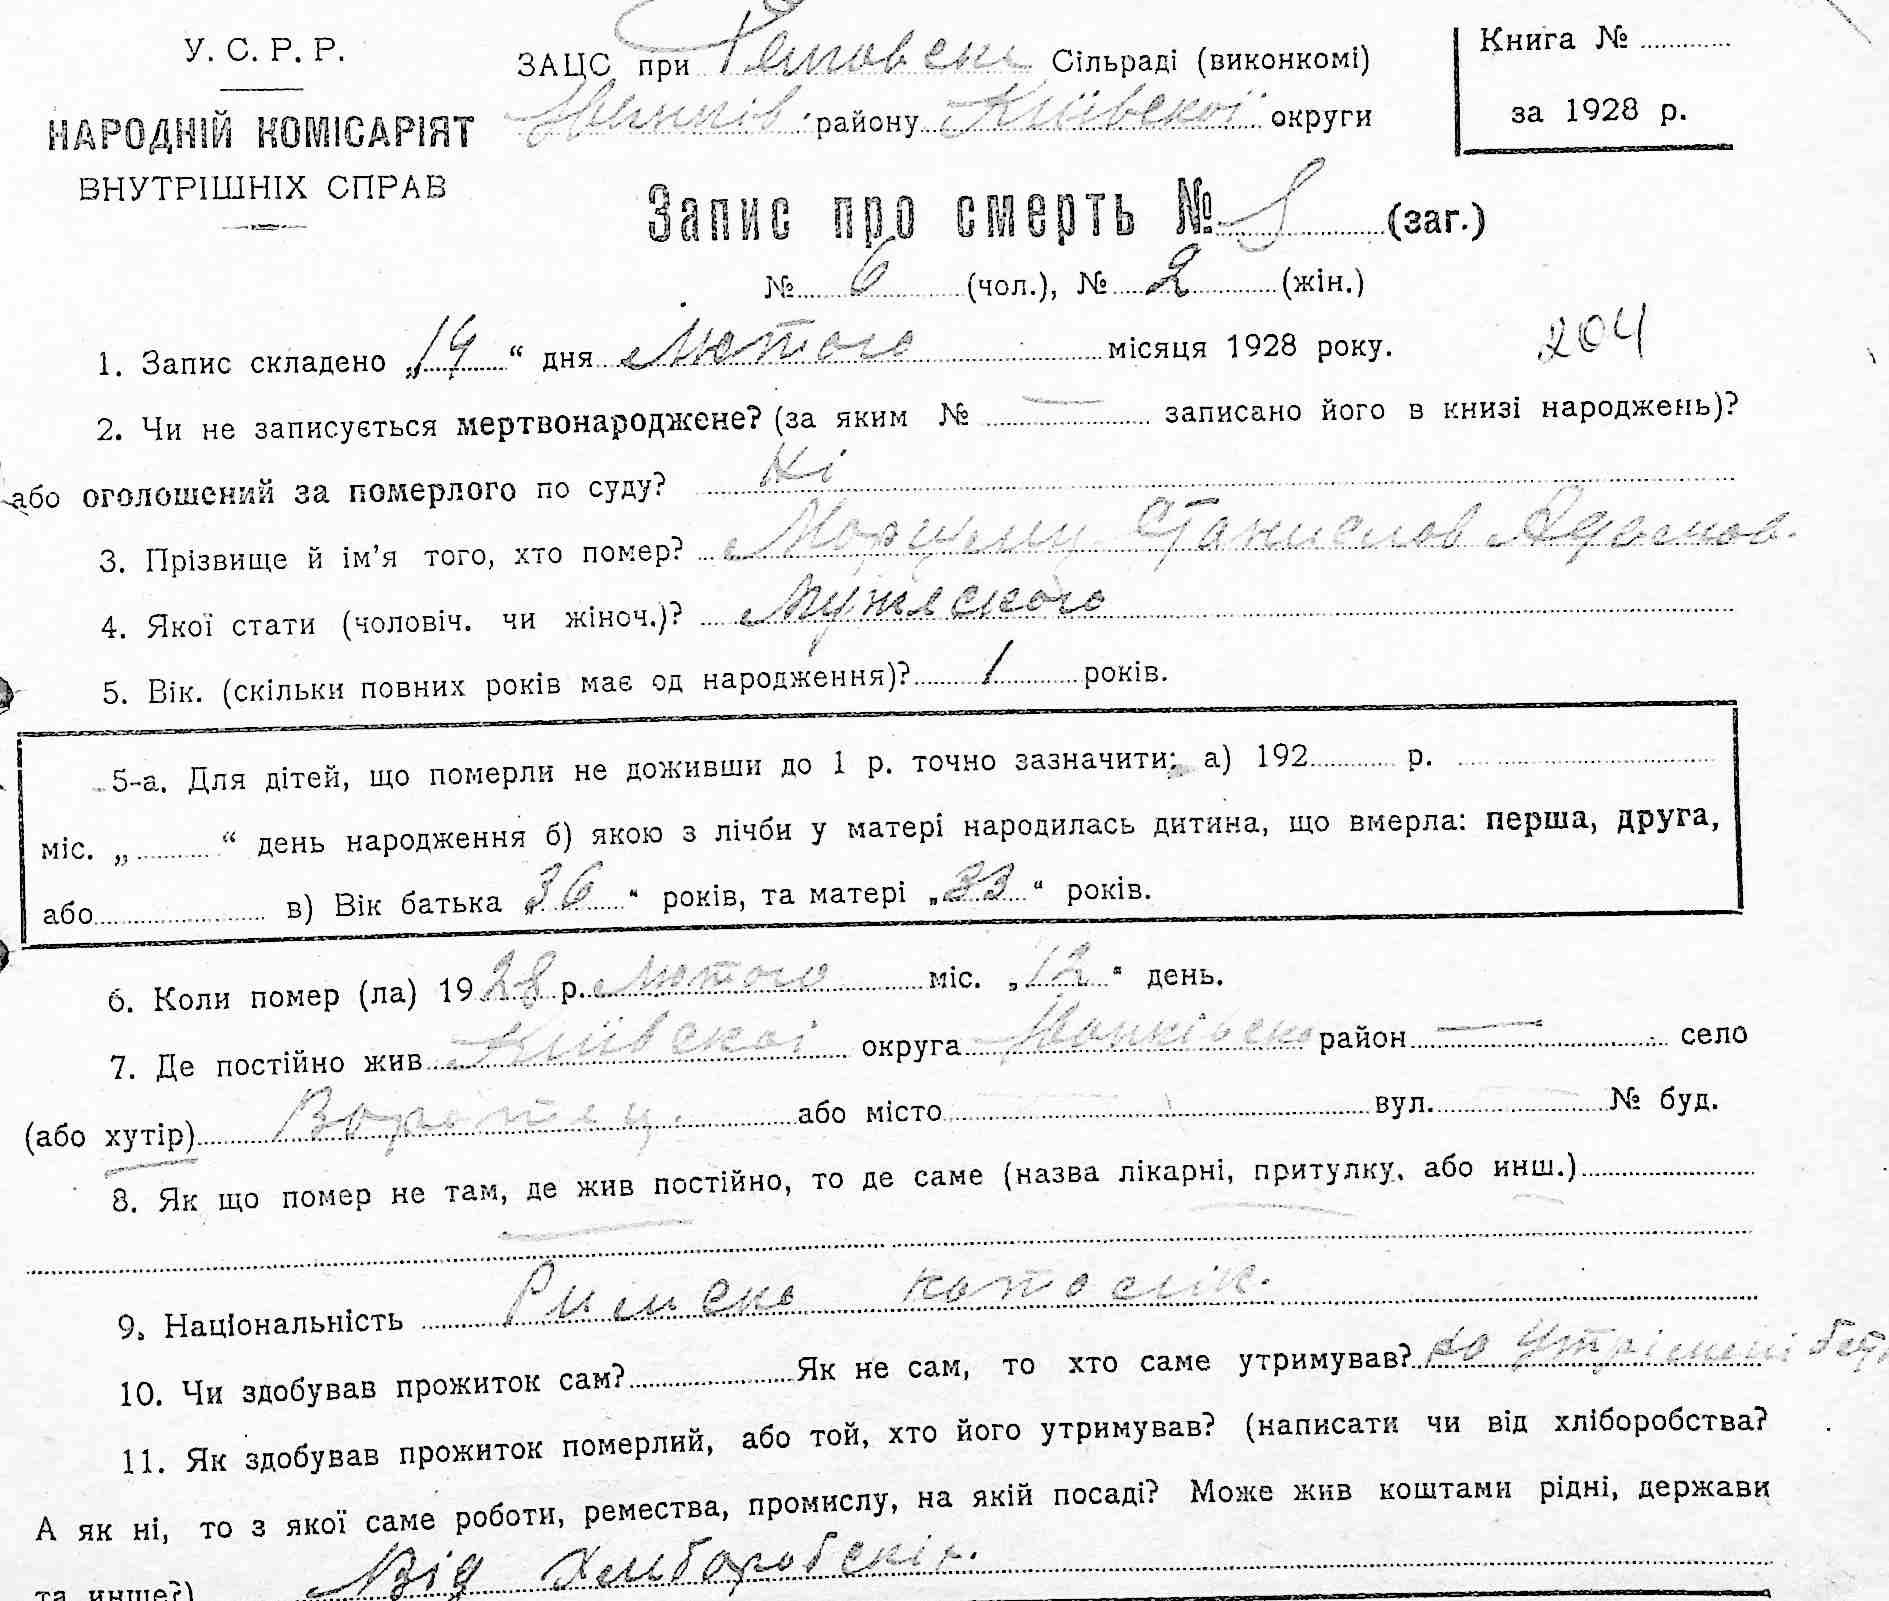 У. С. Р. Р.
НАРОДНІЙ КОМІСАРІЯТ
ВНУТРІШНІХ СПРАВ
ЗАЦС при Сільраді (виконкомі)
району Київскої округи
Книга №
за 1928 р.
Запис про смерть № 8 (заг.)
№ 6 (чол.), № 2 (жін.)
1. Запис складено „14“ дня Лютого місяця 1928 року.
204
2. Чи не записується мертвонароджене? (за яким № — записано його в книзі народжень)?
або оголошений за померлого по суду? Ні
3. Прізвище й ім’я того, хто помер? Станислов Адамов.
4. Якої стати (чоловіч. чи жіноч.)? Мужеского
5. Вік. (скільки повних років має од народження)? 1 років.
5-а. Для дітей, що померли не доживши до 1 р. точно зазначити: а) 192 р.
міс. „ “ день народження б) якою з лічби у матері народилась дитина, що вмерла: перша, друга,
або в) Вік батька „36“ років, та матері „33“ років.
6. Коли помер (ла) 1928 р. Лютого міс. „12“ день.
7. Де постійно жив Київскої округа район — село
(або хутір) або місто вул. № буд.
8. Як що помер не там, де жив постійно, то де саме (назва лікарні, притулку, або инш.)
9. Національність Римско католік.
10. Чи здобував прожиток сам? Як не сам, то хто саме утримував?
11. Як здобував прожиток померлий, або той, хто його утримував? (написати чи від хліборобства?
А як ні, то з якої саме роботи, ремества, промислу, на якій посаді? Може жив коштами рідні, держави
та инше?) Від